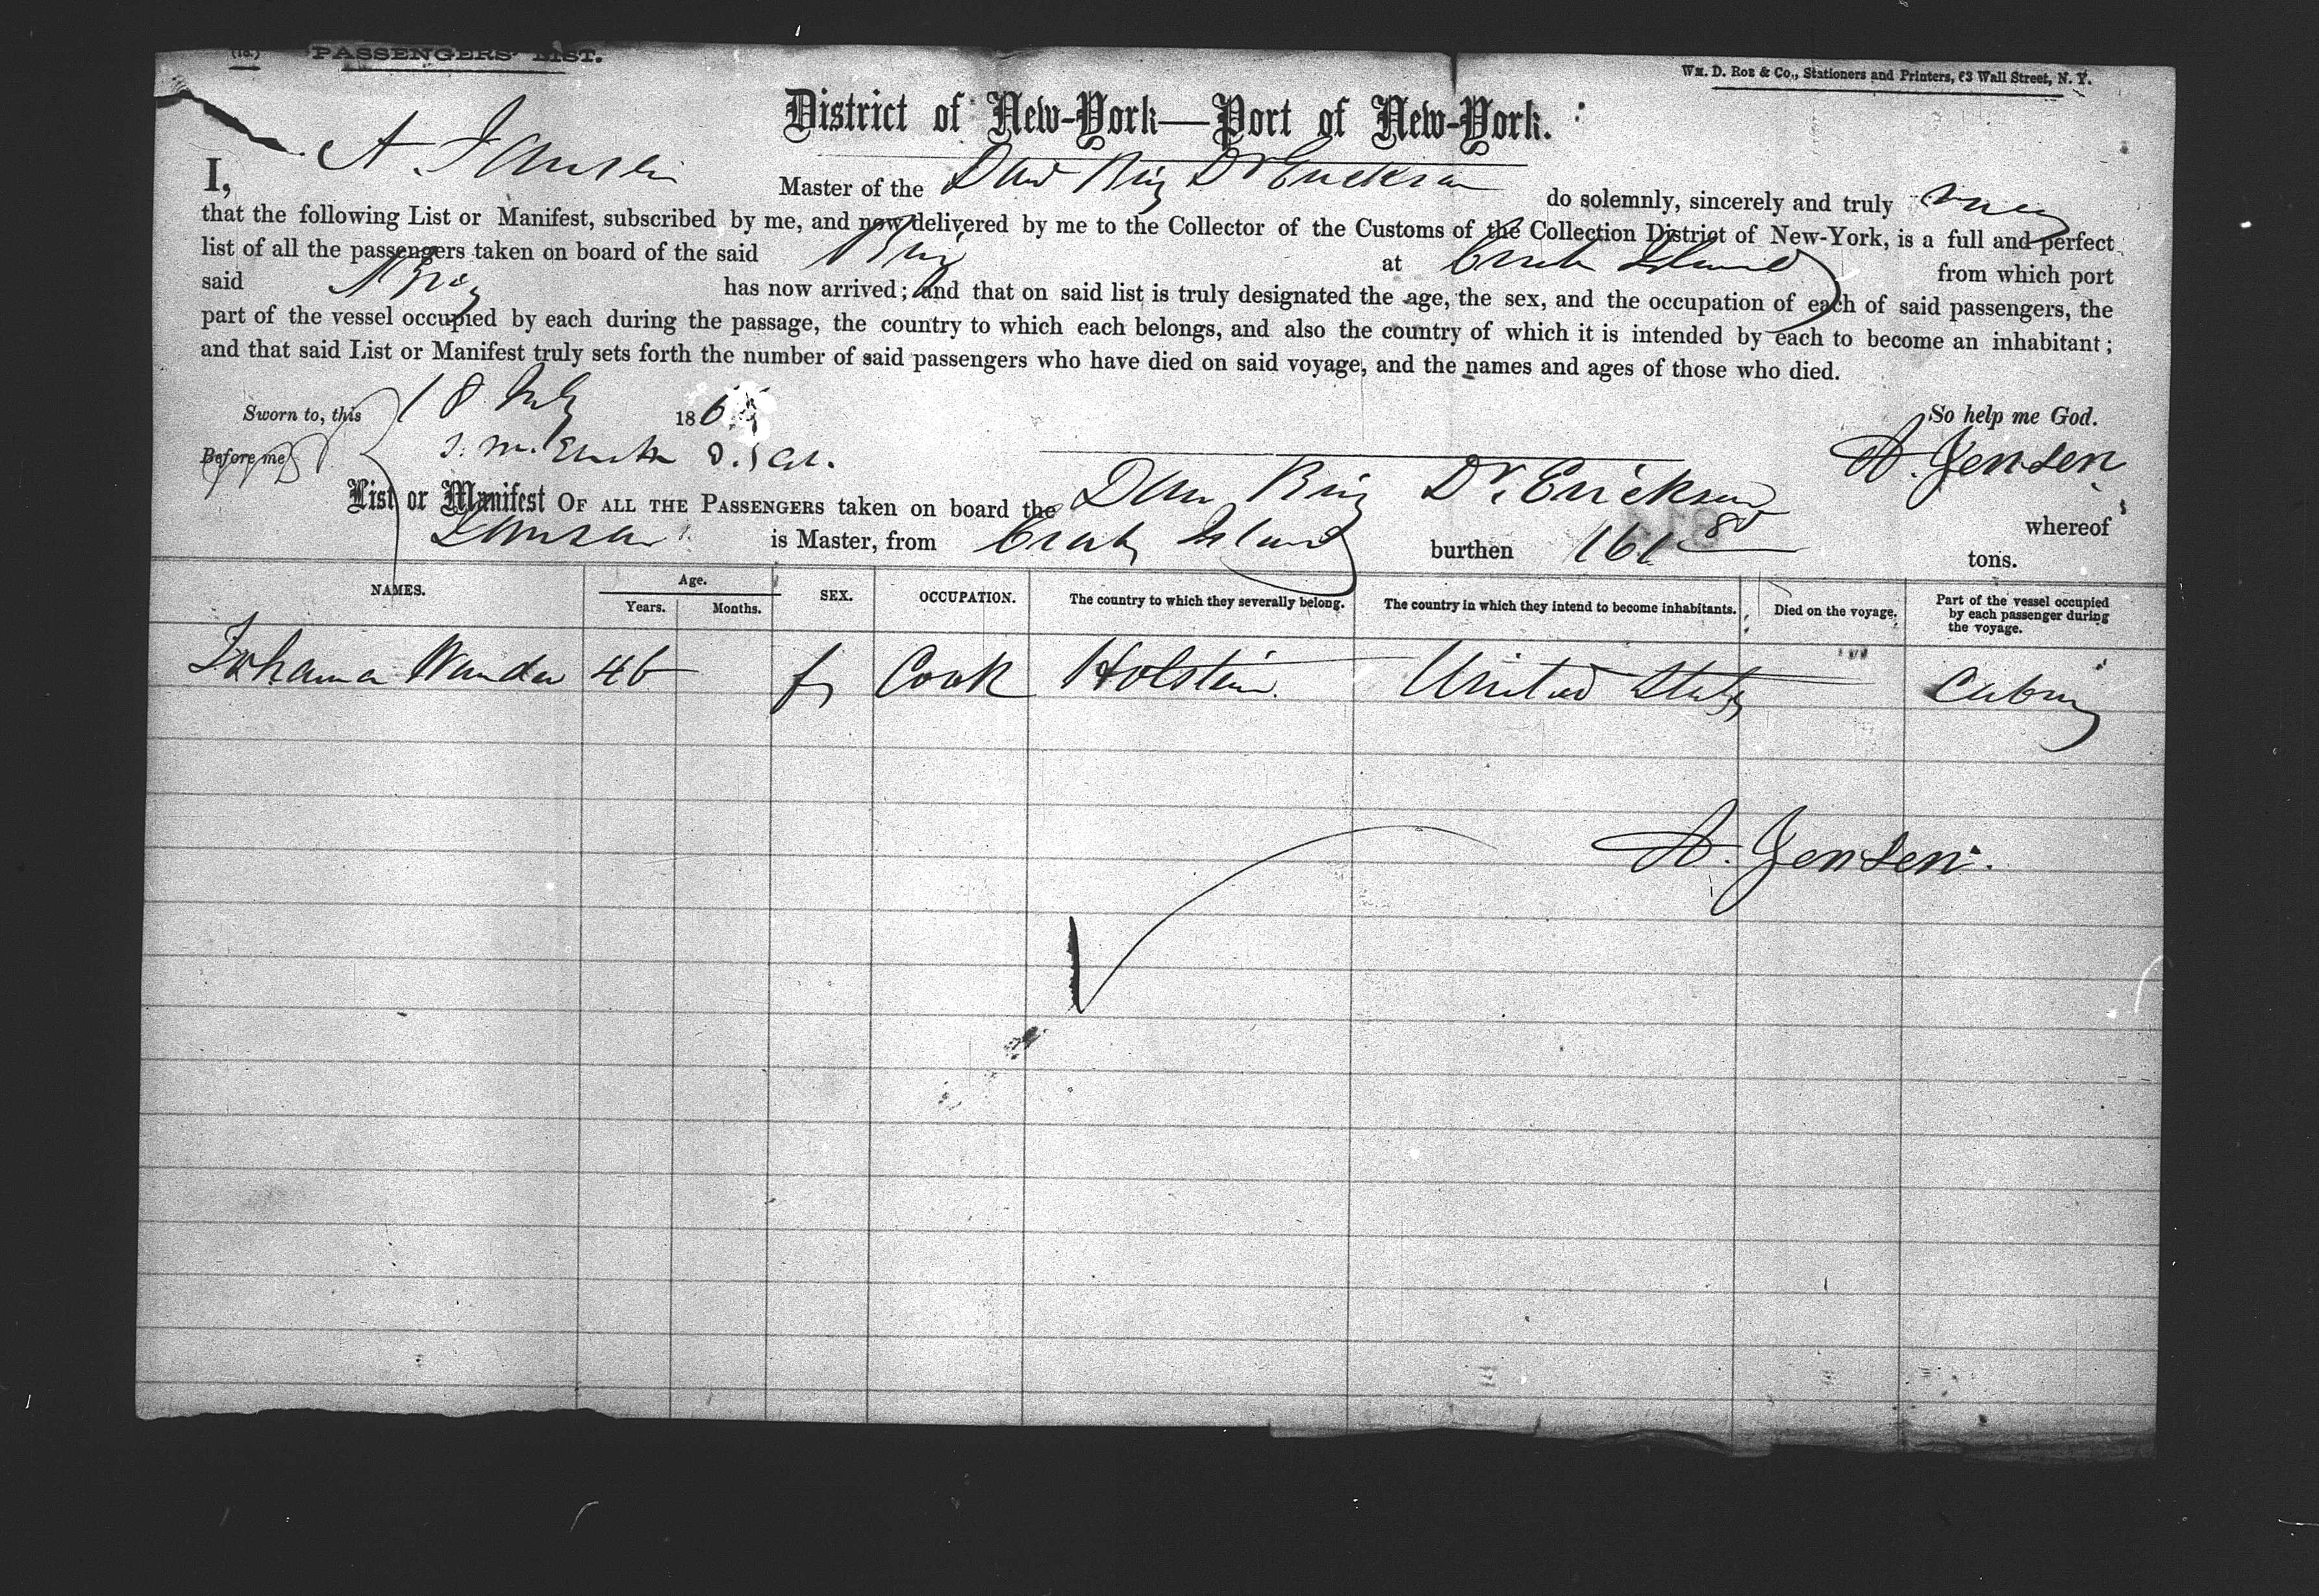 (18.) PASSENGERS' LIST.
Wm. D. Roe & Co., Stationers and Printers, 63 Wall Street, N. Y.
District of New-York—Port of New-York.
I, A. Jensen Master of the Dan Brig Dr Erickson do solemnly, sincerely and truly swear
that the following List or Manifest, subscribed by me, and now delivered by me to the Collector of the Customs of the Collection District of New-York, is a full and perfect
list of all the passengers taken on board of the said Brig at Crab Island from which port
said Brig has now arrived; and that on said list is truly designated the age, the sex, and the occupation of each of said passengers, the
part of the vessel occupied by each during the passage, the country to which each belongs, and also the country of which it is intended by each to become an inhabitant;
and that said List or Manifest truly sets forth the number of said passengers who have died on said voyage, and the names and ages of those who died.
Sworn to, this 18 July 186 So help me God.
Before me A. Jensen
List or Manifest OF ALL THE PASSENGERS taken on board the Dan Brig Dr. Erickson whereof
is Master, from Crab Island burthen 161 80 tons.
NAMES. Age. Years. Months. SEX. OCCUPATION. The country to which they severally belong. The country in which they intend to become inhabitants. Died on the voyage. Part of the vessel occupied by each passenger during the voyage.
Johanna 46 f Cook Holstein United States Cabin
A. Jensen.